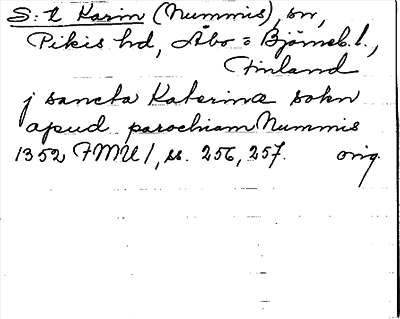 S:t Karin (Nummis), sn,
Pikis hd, Åbo = Björneb. l.,
Finland
j sancta Katerinæ sokn
apud parochiam Nummis
1352 FMU 1, ss. 256, 257. orig.